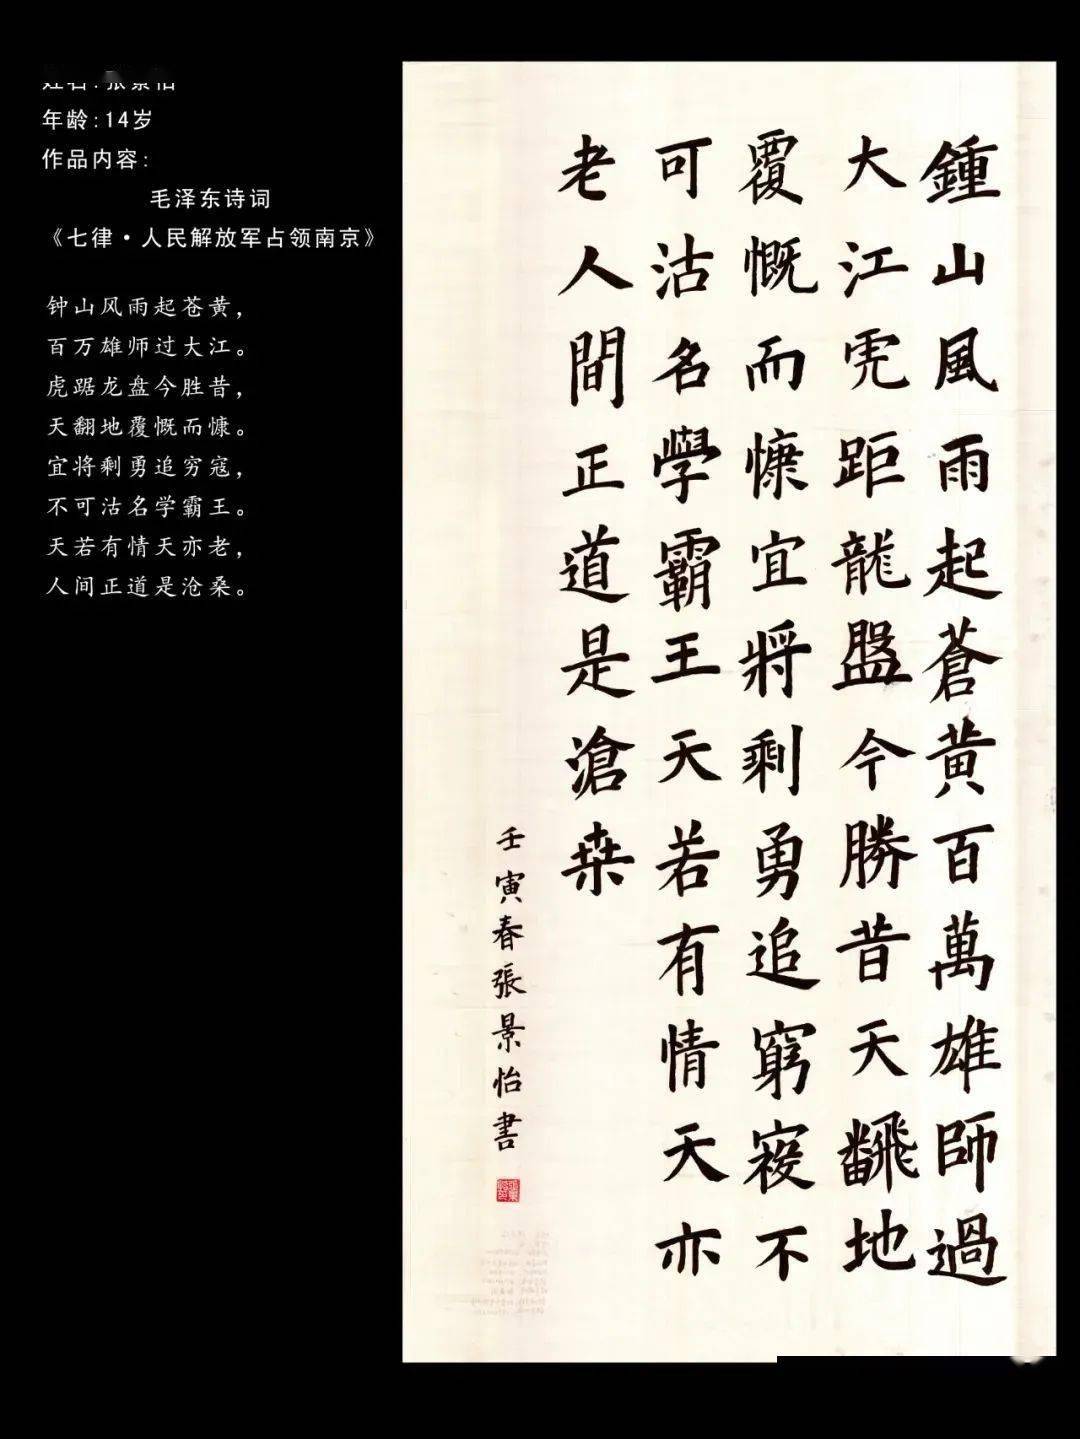 姓名：张景怡
年龄:14岁
作品内容:
毛泽东诗词
《七律·人民解放军占领南京》
钟山风雨起苍黄，
百万雄师过大江。
虎踞龙盘今胜昔，
天翻地覆慨而慷。
宜将剩勇追穷寇，
不可沽名学霸王。
天若有情天亦老，
人间正道是沧桑。
鍾山風雨起蒼黄百萬雄師過
大江虎距龍盤今勝昔天飜地
覆慨而慷宜將剩勇追窮寇不
可沽名學霸王天若有情天亦
老人間正道是滄桒
壬寅春張景怡書